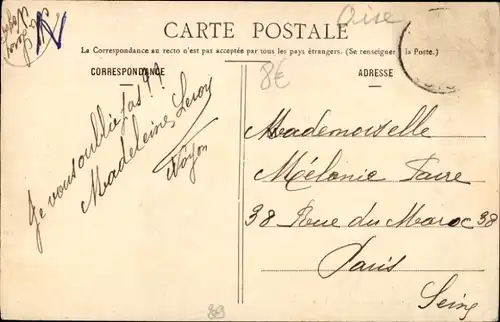 CARTE POSTALE
Oise
La Correspondance au recto n'est pas acceptée par tous les pays étrangers. (Se renseigner à la Poste.)
CORRESPONDANCE
8€
ADRESSE
Je vous oublie pas !!
Madeleine Leroy
Noyon
Mademoiselle
Mélanie Faure
38 Rue du Maroc 38
Paris
Seine
89